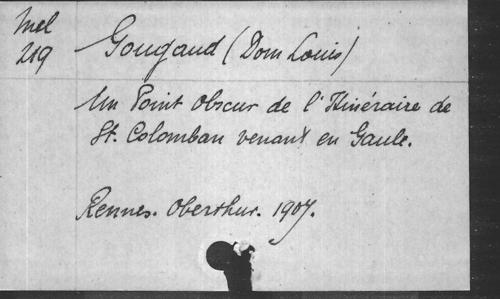 Mel
219
Gougaud (Dom Louis)
Un Point obscur de l'Itinéraire de
St. Colomban venant en Gaule.
Rennes. Oberthur. 1907.